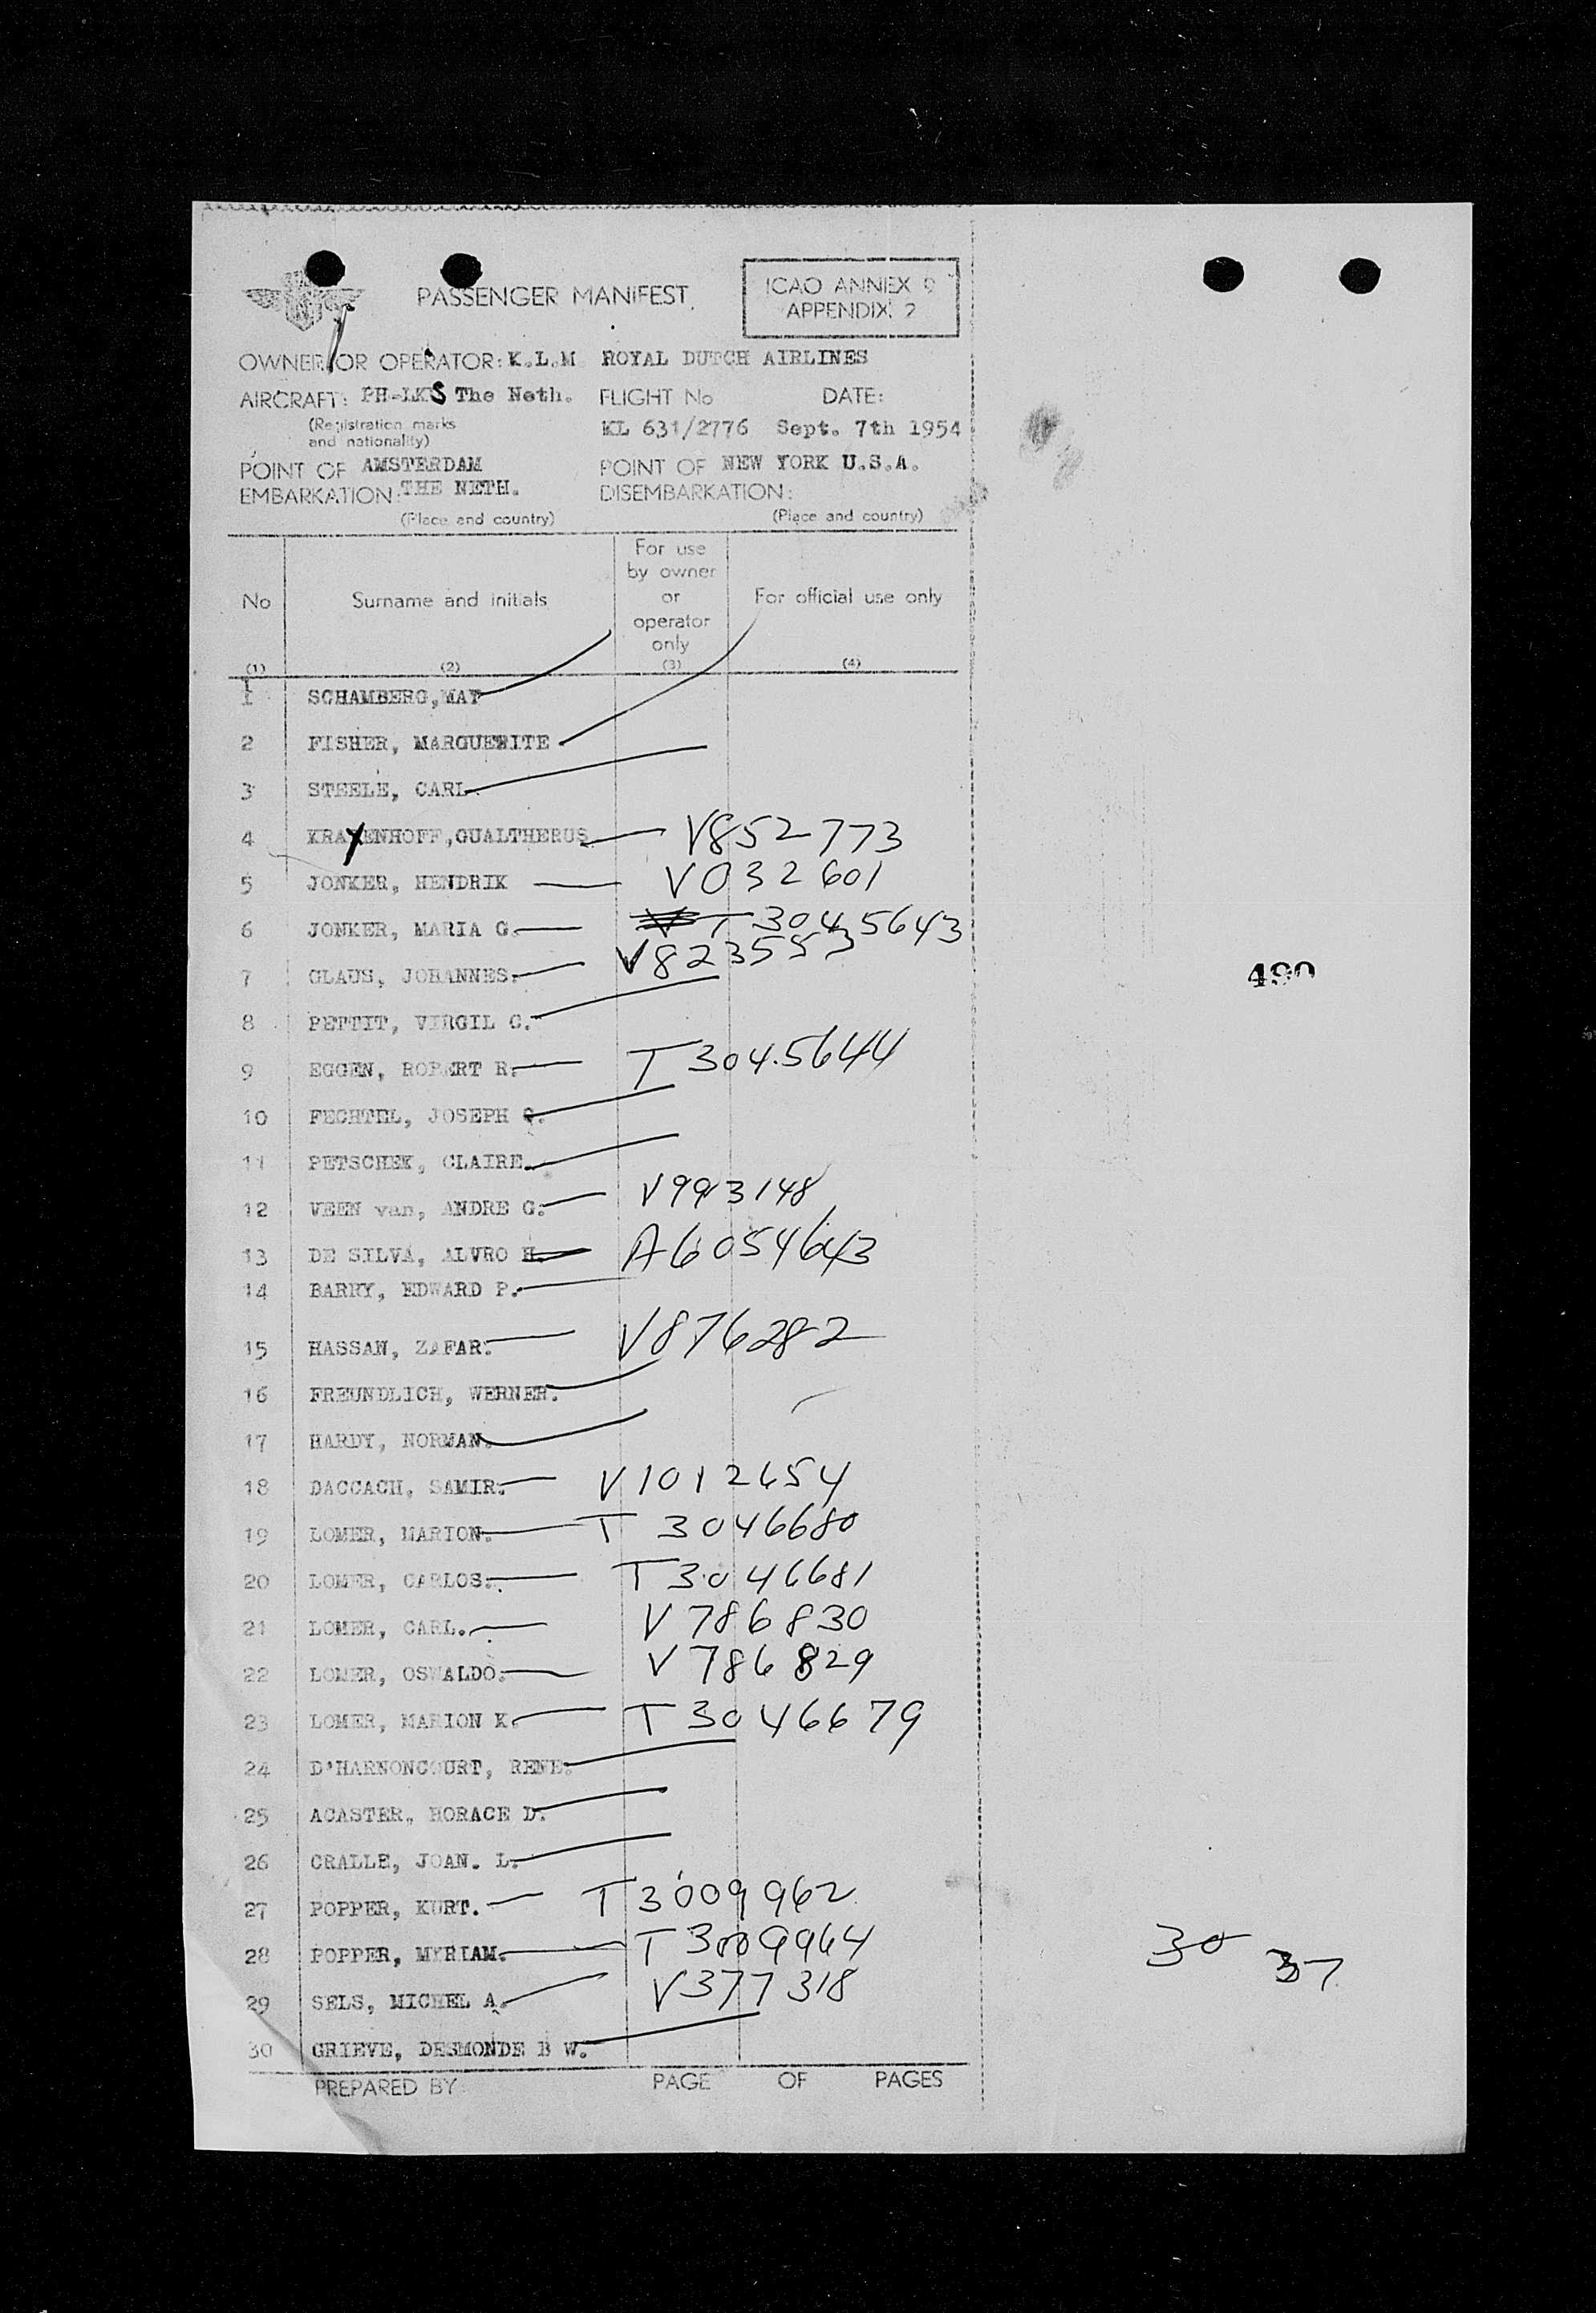 PASSENGER MANIFEST
ICAO ANNEX 9
APPENDIX 2
OWNER OR OPERATOR: K.L.M ROYAL DUTCH AIRLINES
AIRCRAFT: PH-LKS The Neth. FLIGHT No DATE:
(Registration marks
and nationality)
KL 631/2776 Sept. 7th 1954
POINT OF AMSTERDAM POINT OF NEW YORK U.S.A.
EMBARKATION: THE NETH. DISEMBARKATION:
(Place and country) (Place and country)
No Surname and initials For use by owner or operator only For official use only
(1) (2) (3) (4)
1 SCHAMBERG, MAY
2 FISHER, MARGUERITE
3 STEELE, CARL
4 KRAYENHOFF, GUALTHERUS V852773
5 JONKER, HENDRIK V032601
6 JONKER, MARIA G. T3045643
7 GLAUS, JOHANNES. V823553
8 PETTIT, VIRGIL C.
9 EGGEN, ROBERT R. T3045644
10 FECHTEL, JOSEPH
11 PETSCHEK, CLAIRE.
12 VEEN van, ANDRE G. V993148
13 DE SILVA, ALVRO H. A6054643
14 BARRY, EDWARD P.
15 HASSAN, ZAFAR. V876282
16 FREUNDLICH, WERNER.
17 HARDY, NORMAN.
18 DACCACH, SAMIR. V1012654
19 LOMER, MARION. T3046680
20 LOMER, CARLOS. T3046681
21 LOMER, CARL. V786830
22 LOMER, OSWALDO. V786829
23 LOMER, MARION K. T3046679
24 D'HARNONCOURT, RENE.
25 ACASTER, HORACE D.
26 CRALLE, JOAN. L.
27 POPPER, KURT. T3009962
28 POPPER, MYRIAM. T3009964
29 SELS, MICHEL A. V377318
30 GRIEVE, DESMONDE B W.
PREPARED BY PAGE OF PAGES
490
30 37